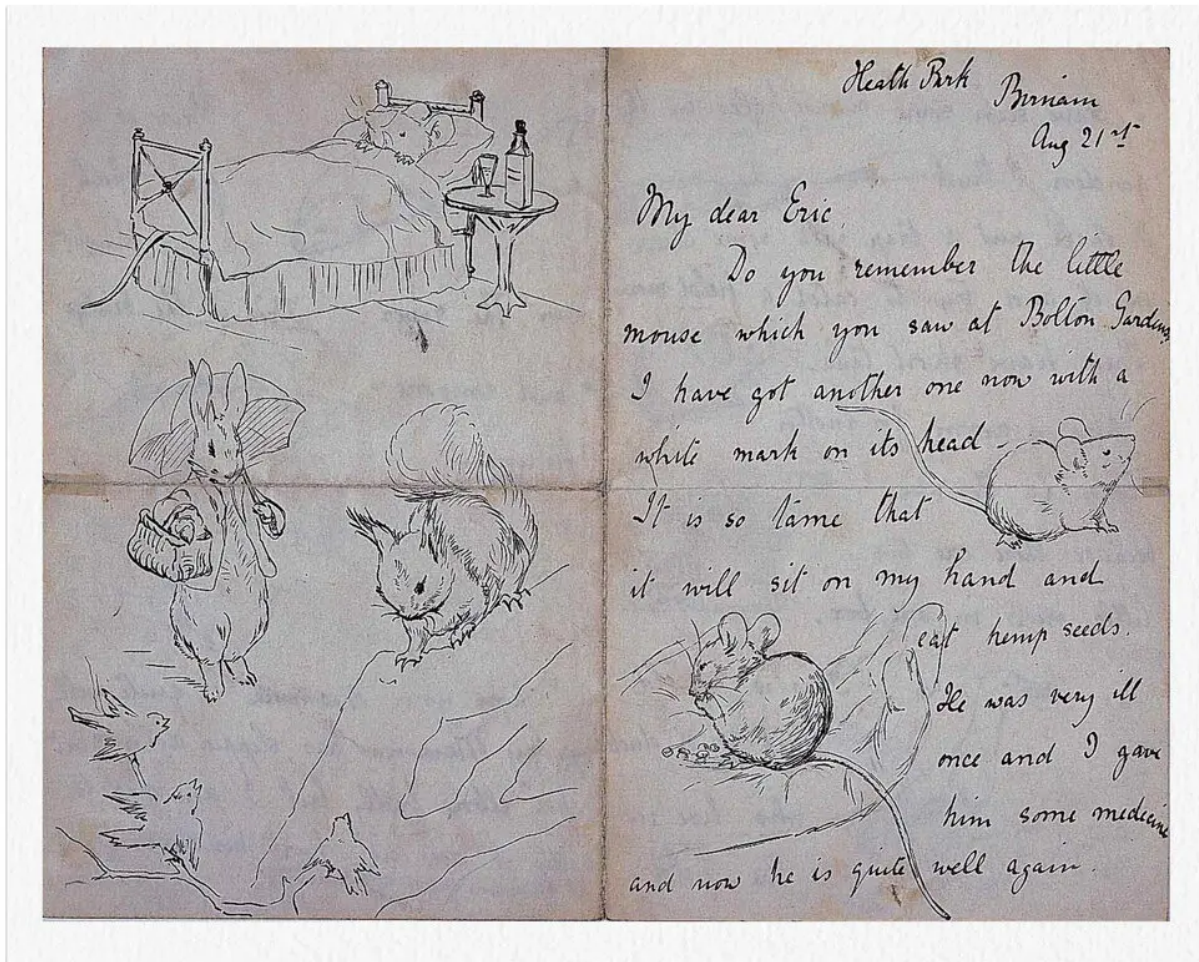 Heath Park
Birnam
Aug 21st
My dear Eric.
Do you remember the little
mouse which you saw at Bolton Gardens
I have got another one now with a
white mark on its head
It is so tame that
it will sit on my hand and
eat hemp seeds.
He was very ill
once and I gave
him some medicine
and now he is quite well again.